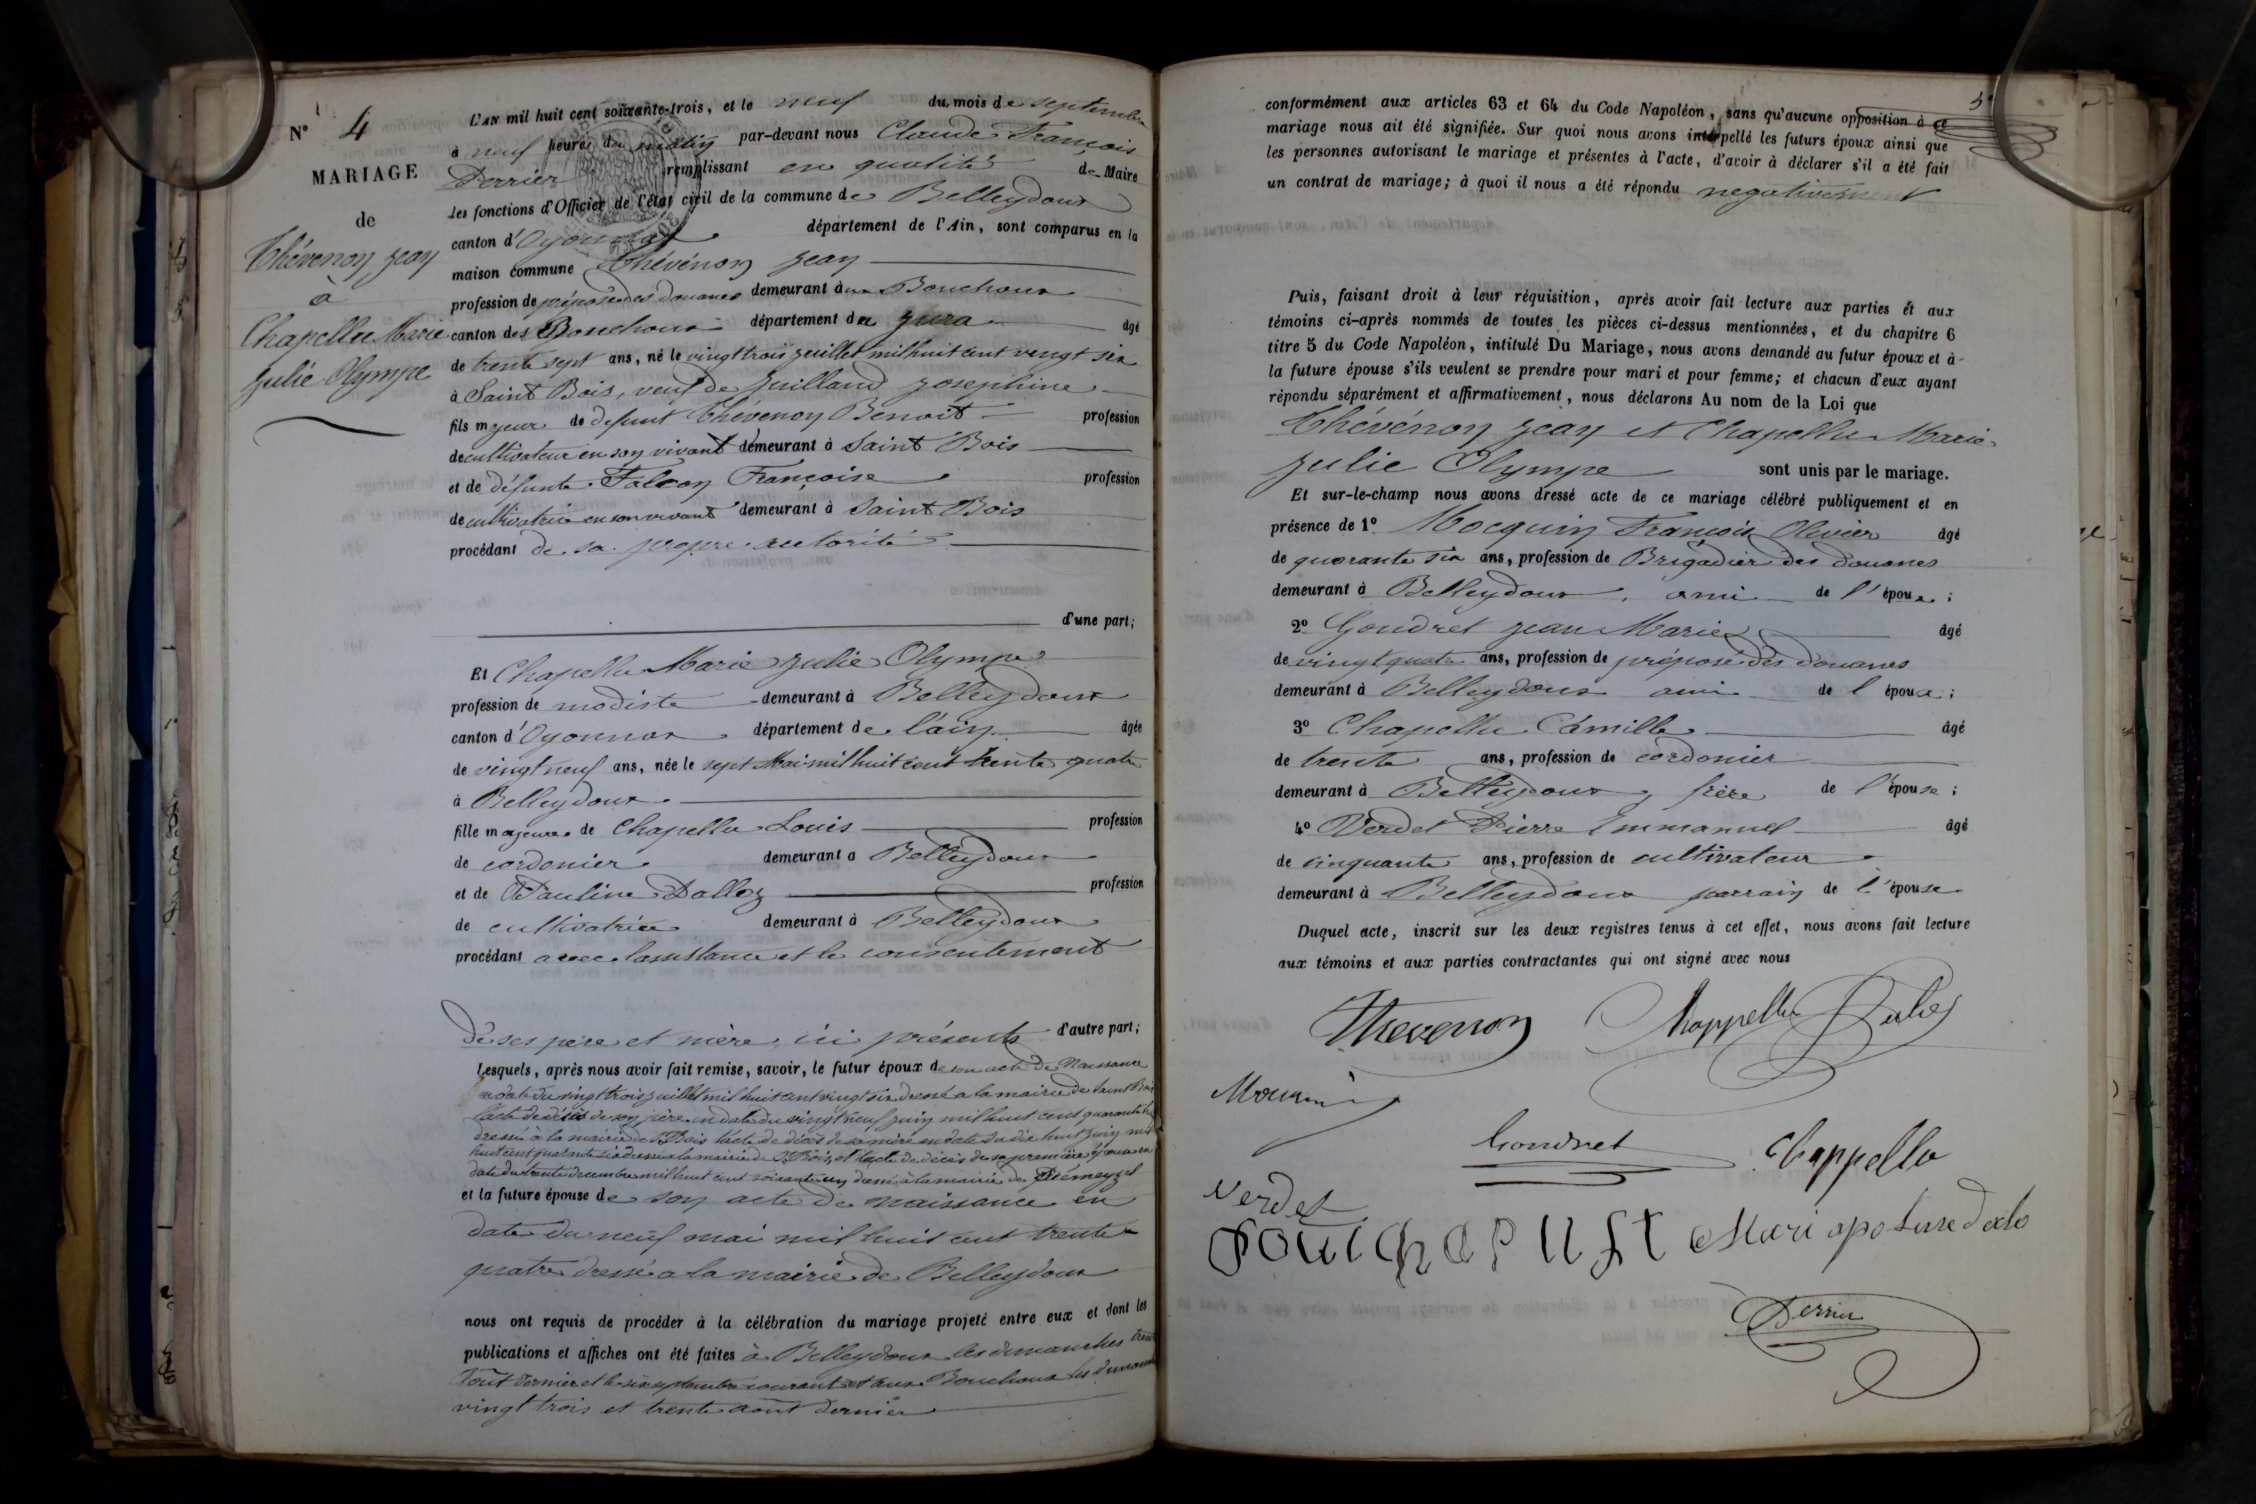 N° 4
MARIAGE
de
Thévenon Jean
à
Chapellu Marie
Julie Olympe
L'AN mil huit cent soixante-trois, et le neuf du mois de septembre
à neuf heures du matin par-devant nous Claude François
Perrier remplissant en qualité de Maire
les fonctions d'Officier de l'état civil de la commune de Belleydoux
canton d'Oyonnax département de l'Ain, sont comparus en la
maison commune Thévénon Jean
profession de préposé des douanes demeurant aux Bouchoux
canton des Bouchoux département du Jura âgé
de trente sept ans, né le vingt trois juillet mil huit cent vingt six
à Saint Bois, veuf de Juilland Josephine
fils majeur de defunt Thévenon Benoit profession
de cultivateur en son vivant demeurant à Saint Bois
et de défunte Falcon Françoise profession
de cultivatrice en son vivant demeurant à Saint Bois
procédant de sa propre autorité
d'une part;
Et Chapellu Marie Julie Olympe
profession de modiste demeurant à Belleydoux
canton d'Oyonnax département de l'ain âgée
de vingt neuf ans, née le sept Mai mil huit cent trente quatre
à Belleydoux
fille majeure de Chapellu Louis profession
de cordonier demeurant à Belleydoux
et de Pauline Dalloz profession
de cultivatrice demeurant à Belleydoux
procédant avec l'assistance et le consentement
de ses père et mère ici présents d'autre part;
Lesquels, après nous avoir fait remise, savoir, le futur époux de son acte de Naissance
en date du vingt trois juillet mil huit cent vingt six dressé a la mairie de Saint Bois
l'acte de décès de son père en date du vingt neuf juin mil huit cent quarante
dressé à la mairie de St Bois l'acte de décès de sa mère en date du dix huit juin mil
huit cent quarante six dressé a la mairie de St Bois et l'acte de décès de sa première épouse en
date du trente decembre mil huit cent soixante un dressé a la mairie de Prémeyzel
et la future épouse de son acte de naissance en
date du neuf mai mil huit cent trente
quatre dressé a la mairie de Belleydoux
nous ont requis de procéder à la célébration du mariage projeté entre eux et dont les
publications et affiches ont été faites à Belleydoux les dimanches trente
août dernier et le six septembre courant et aux Bouchoux les dimanches
vingt trois et trente août dernier
conformément aux articles 63 et 64 du Code Napoléon, sans qu'aucune opposition à ce
mariage nous ait été signifiée. Sur quoi nous avons interpellé les futurs époux ainsi que
les personnes autorisant le mariage et présentes à l'acte, d'avoir à déclarer s'il a été fait
un contrat de mariage; à quoi il nous a été répondu negativement
Puis, faisant droit à leur réquisition, après avoir fait lecture aux parties et aux
témoins ci-après nommés de toutes les pièces ci-dessus mentionnées, et du chapitre 6
titre 5 du Code Napoléon, intitulé Du Mariage, nous avons demandé au futur époux et à
la future épouse s'ils veulent se prendre pour mari et pour femme; et chacun d'eux ayant
répondu séparément et affirmativement, nous déclarons Au nom de la Loi que
Thévénon Jean et Chapellu Marie
Julie Olympe sont unis par le mariage.
Et sur-le-champ nous avons dressé acte de ce mariage célébré publiquement et en
présence de 1° Mocquin François Olivier âgé
de quarante six ans, profession de Brigadier des douanes
demeurant à Belleydoux, ami de l'époux;
2° Gondret Jean Marie âgé
de vingt quatre ans, profession de préposé des douanes
demeurant à Belleydoux ami de l'époux;
3° Chapellu Camille âgé
de trente ans, profession de cordonier
demeurant à Belleydoux, frère de l'épouse;
4° Verdet Pierre Emmanuel âgé
de cinquante ans, profession de cultivateur
demeurant à Belleydoux parrain de l'épouse
Duquel acte, inscrit sur les deux registres tenus à cet effet, nous avons fait lecture
aux témoins et aux parties contractantes qui ont signé avec nous
Thevenon Chappellu Julie
Gondret Chappellu
Verdet
Perrier